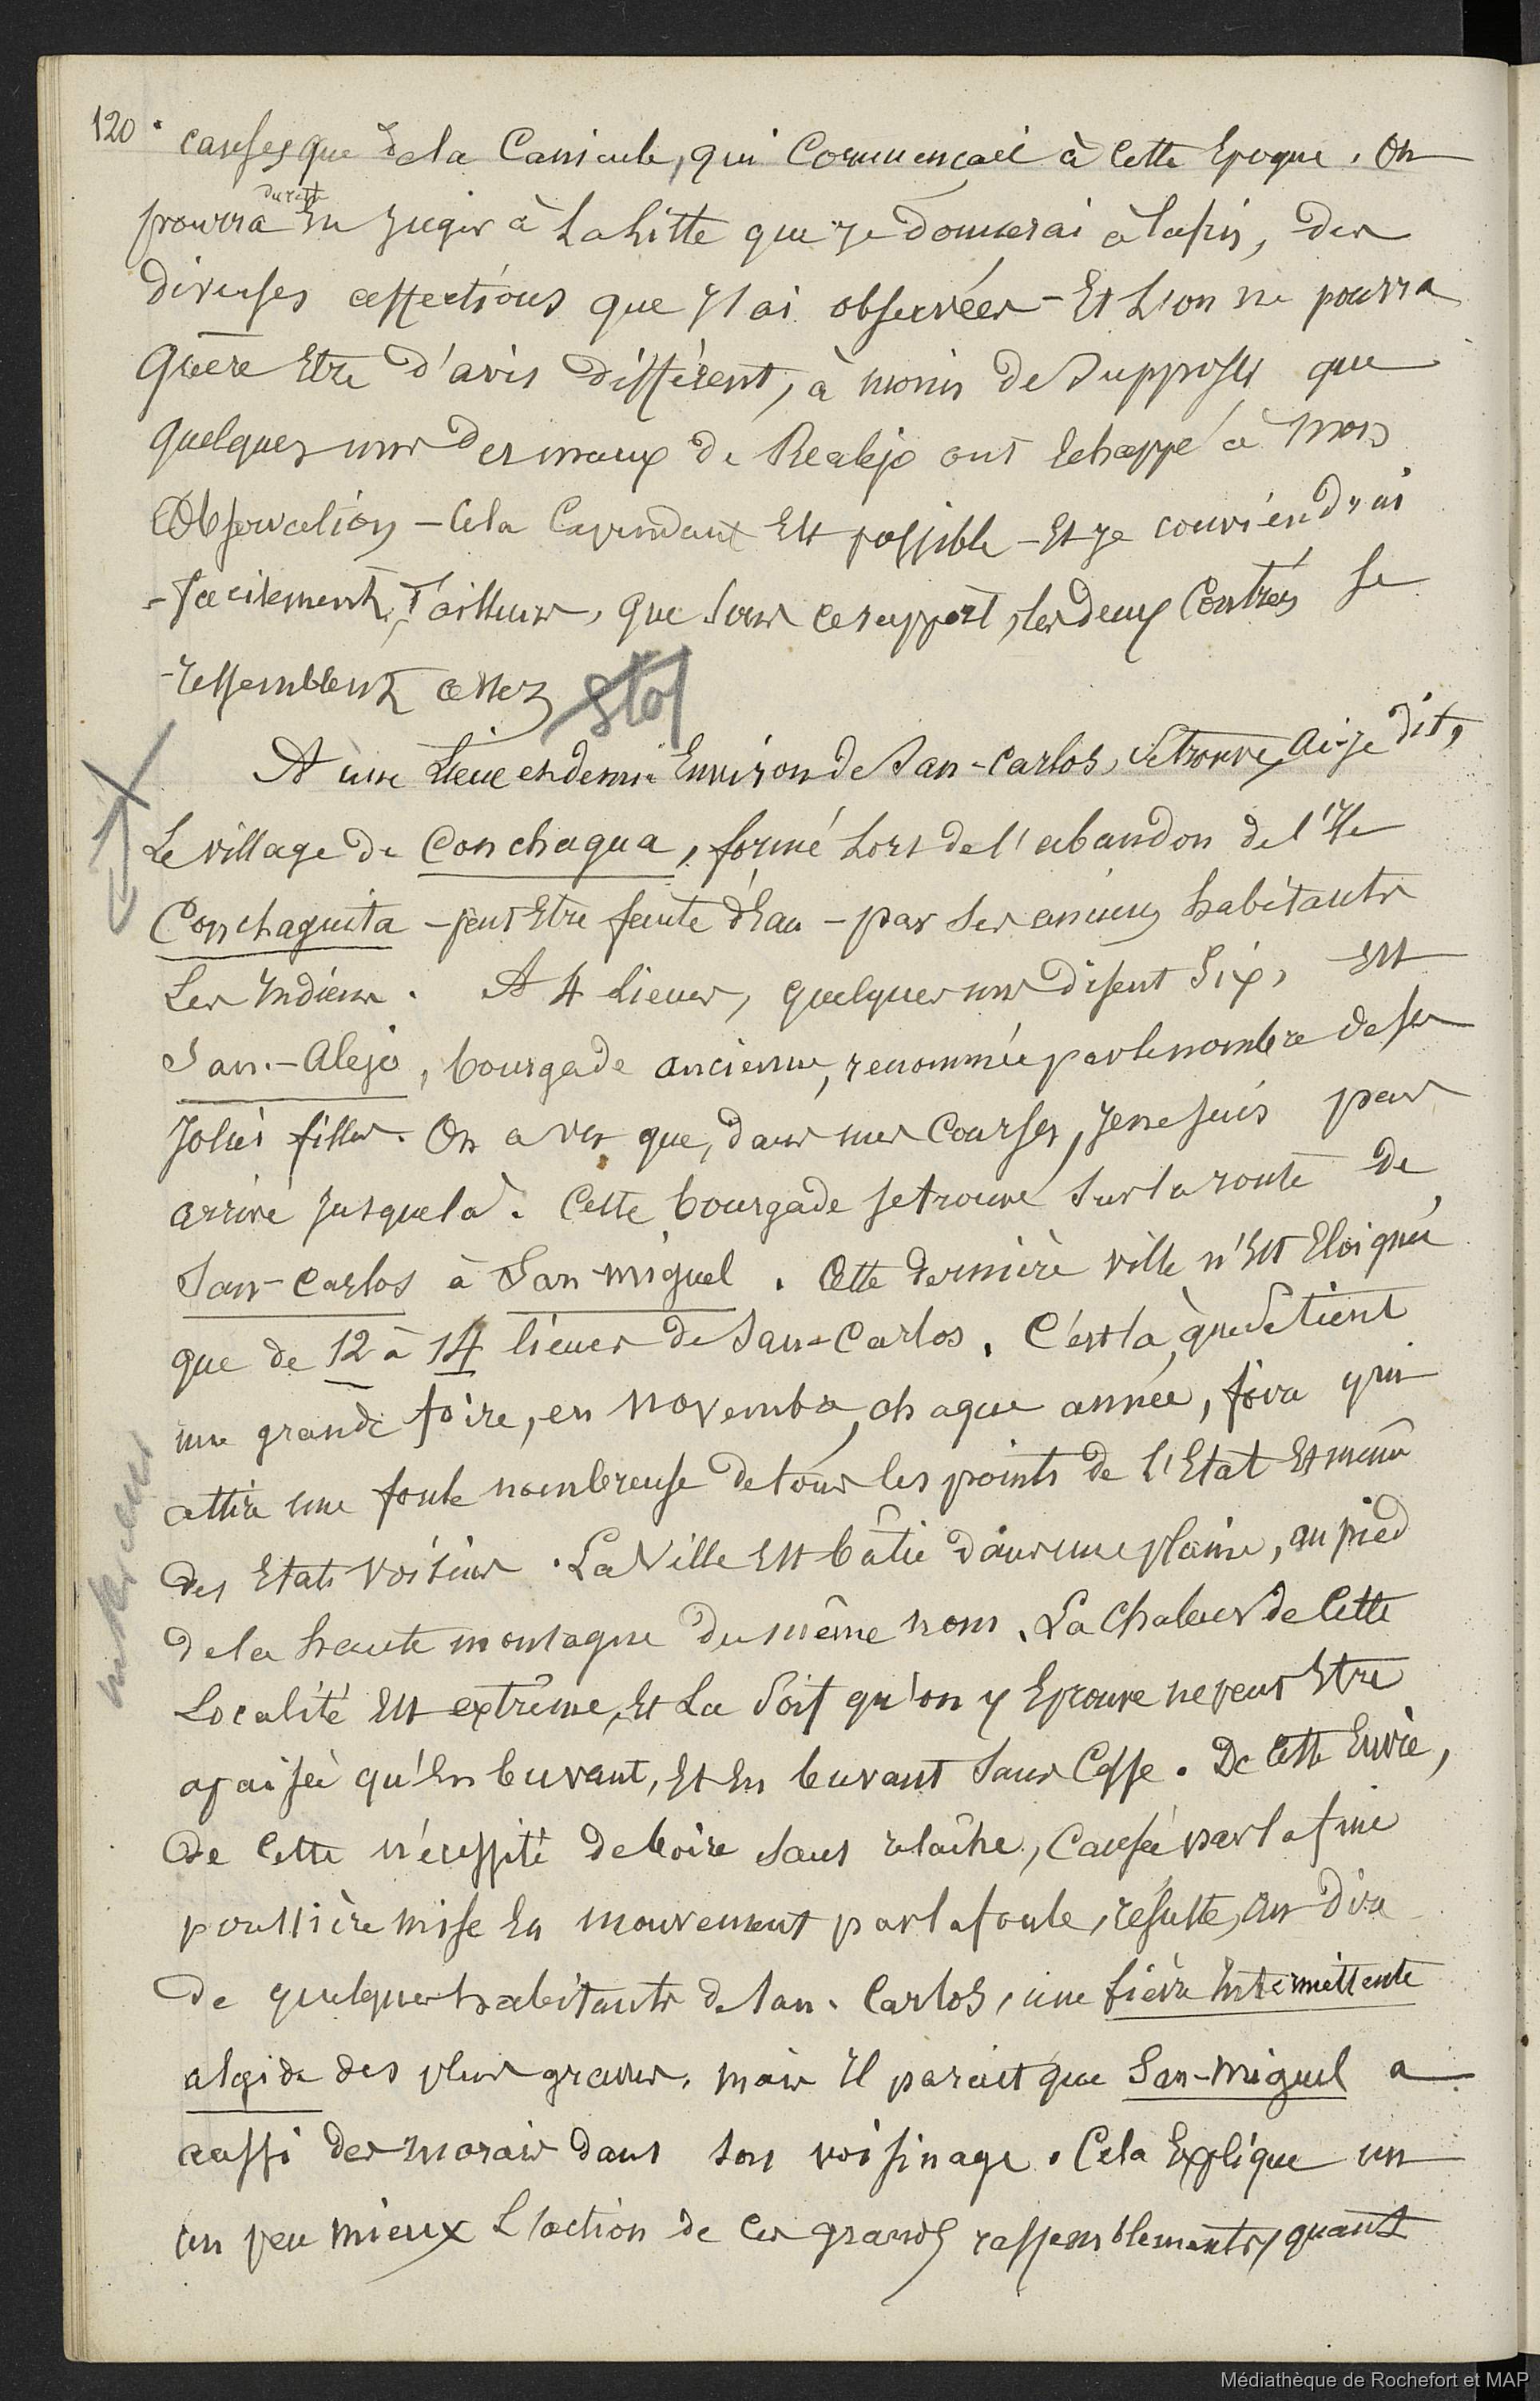 120
causes que de la Canicule, qui Commençait à Cette Epoque. On
du reste
pourra En juger à La Liste que je donnerai à la fin, des
diverses affections que j'ai observées - Et L'on ne pourra
Guère Etre d'avis différent, à moins de Supposer que
Quelques uns des maux de Realejo ont Echappé à mon
Observation - Cela Cependant Est possible - Et je conviendrai
- facilement, d'ailleurs, que Sous ce rapport, les deux Contrées se
- ressemblent assez
Stop
A une Lieue et demie Environ de San-Carlos, Se trouve, ai-je dit,
Le village de Conchagua, formé Lors de l'abandon de l'Ile
Conchaguita - peut Etre faute d'Eau - par Ses anciens habitants
Les Indiens. A 4 Lieues, quelques uns disent Six, Est
San-Alejo, bourgade ancienne, renommée par le nombre de ses
Jolies filles. On a vu que, dans mes Courses, je ne suis pas
arrivé jusque là. Cette bourgade se trouve Sur la route de
San-Carlos à San-Miguel. Cette dernière ville n'Est Eloignée
que de 12 à 14 lieues de San-Carlos. C'est là, que Se tient
une grande foire, en novembre, chaque année, foire qui
attire une foule nombreuse de tous les points de l'Etat Et même
des Etats voisins. La Ville Est bâtie dans une plaine, au pied
de la haute montagne du même nom. La Chaleur de Cette
Localité Est extrême, Et La Soif qu'on y Eprouve ne peut Etre
apaisée qu'En buvant, Et En buvant Sans Cesse. De Cette Envie,
De Cette nécessité de boire sans relâche, Causée par la fine
poussière mise En mouvement par la foule, résulte, au dire
de quelques habitants de San-Carlos, une fièvre Intermittente
algide des plus graves. mais Il parait que San-Miguel a
aussi des marais dans son voisinage. Cela Explique un
un peu mieux L'action de ces grands rassemblements, quant